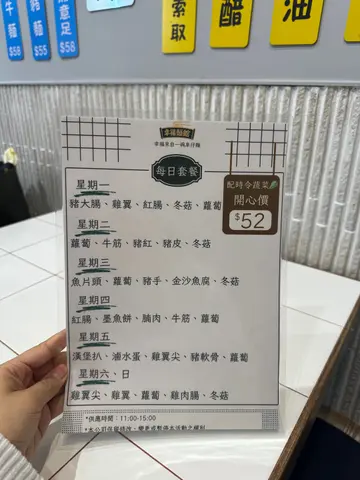 牛麵
$55
豬麵
$55
意足
$58
索取
醋
油
幸福麵館
幸福來自一碗車仔麵
每日套餐
配時令蔬菜
開心價
$52
星期一
豬大腸、雞翼、紅腸、冬菇、蘿蔔
星期二
蘿蔔、牛筋、豬紅、豬皮、冬菇
星期三
魚片頭、蘿蔔、豬手、金沙魚腐、冬菇
星期四
紅腸、墨魚餅、腩肉、牛筋、蘿蔔
星期五
漢堡扒、滷水蛋、雞翼尖、豬軟骨、蘿蔔
星期六、日
雞翼尖、雞翼、蘿蔔、雞肉腸、冬菇
*供應時間：11:00-15:00
*本公司保留修改、變更或暫停本活動之權利